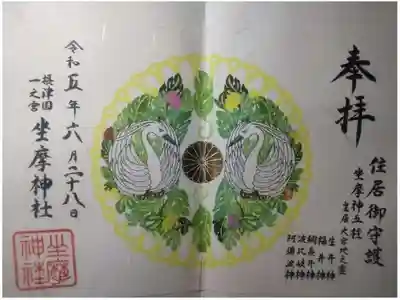 奉拝
住居御守護
坐摩神五柱
生井神
福井神
綱長井神
波比岐神
阿須波神
令和五年六月二十八日
摂津国
一之宮
坐摩神社
坐摩
神社